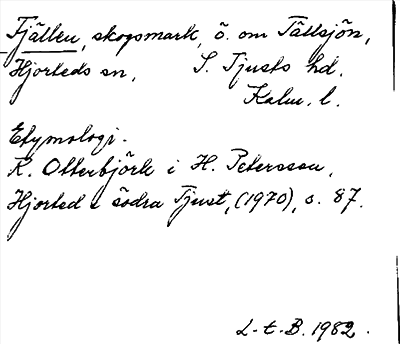 Fjällen, skogsmark, ö. om Tättsjön,
Hjorteds sn, S. Tjusts hd,
Kalm. l.
Etymologi.
R. Otterbjörk i H. Petersson,
Hjorted i södra Tjust, (1970), s. 87.
L-t-B. 1982.